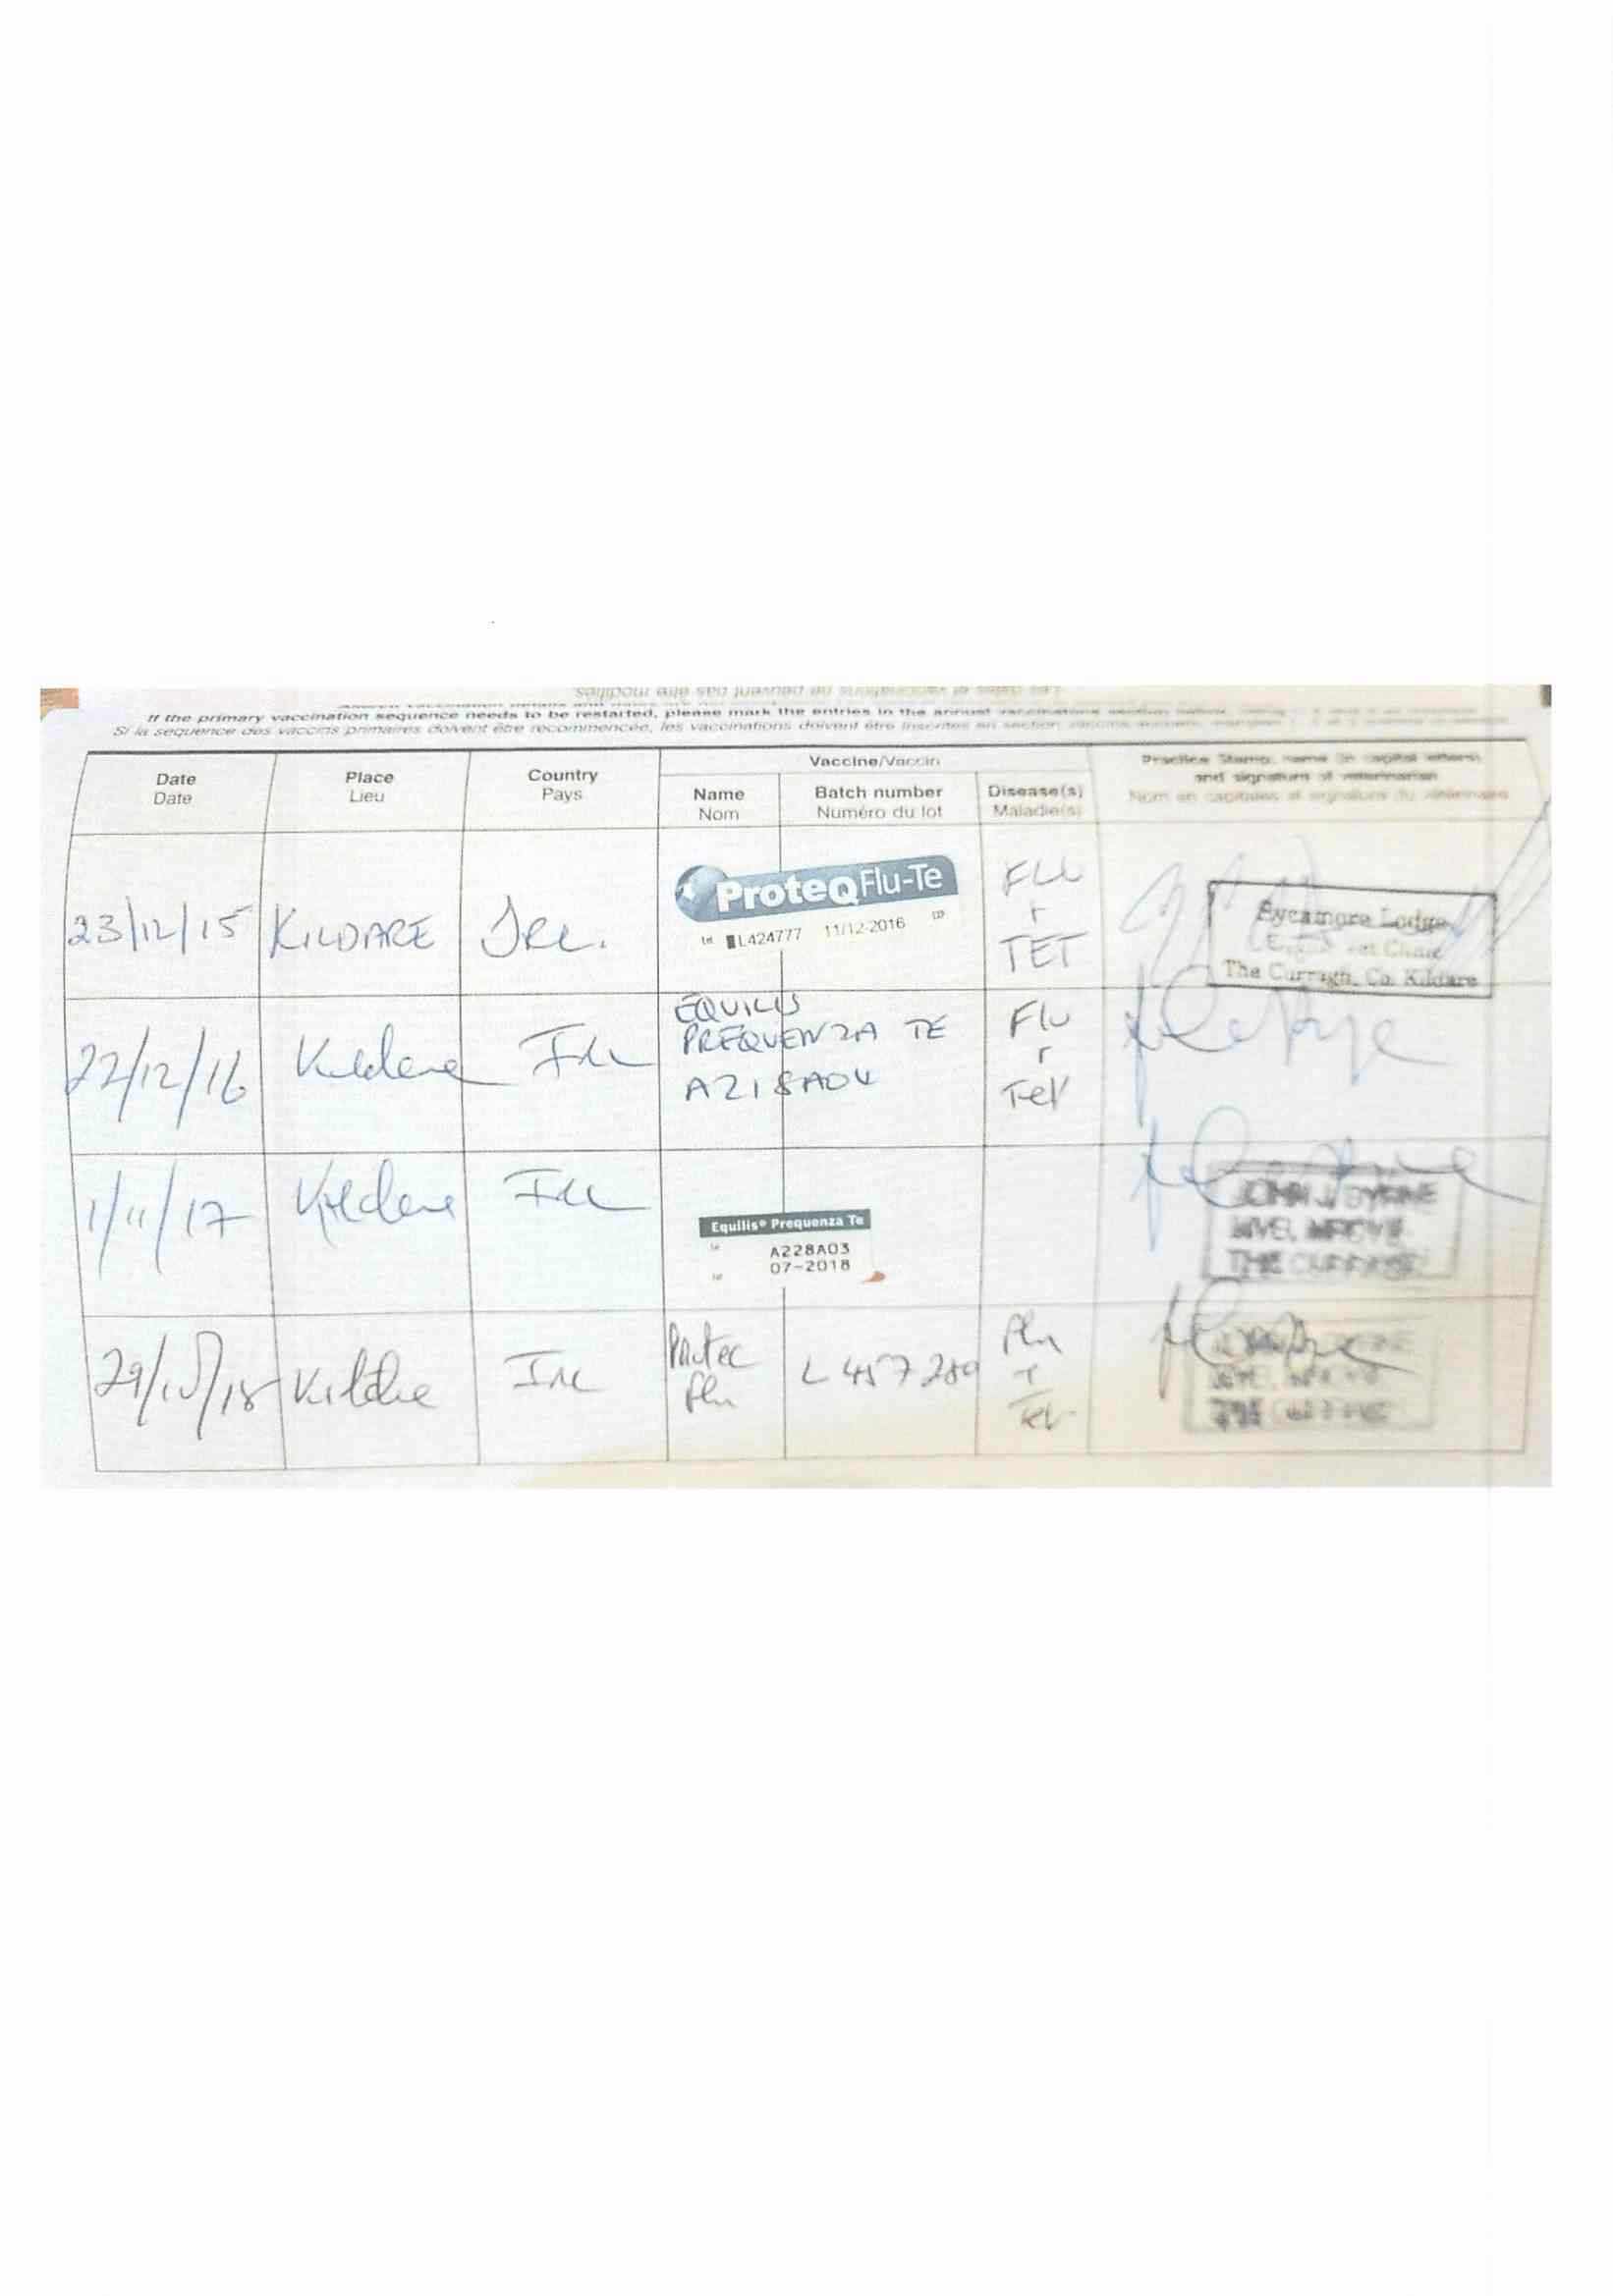 If the primary vaccination sequence needs to be restarted, please mark the entries in the annual vaccinations section
Si la séquence des vaccins primaires doivent être recommencée, les vaccinations doivent être inscrites en section
Date
Date
Place
Lieu
Country
Pays
Vaccine/Vaccin
Name
Nom
Batch number
Numéro du lot
Disease(s)
Maladie(s)
Practice Stamp, name (in capital letters)
and signature of veterinarian
Nom en capitales et signature du vétérinaire
23/12/15 KILDARE IRE.
ProteqFlu-Te
L424777 11/12-2016
FLU
+
TET
Sycamore Lodge
The Curragh, Co. Kildare
22/12/16 Kildare Ire
EQUILIS
PREQUENZA TE
A218A04
Flu
+
Tet
1/11/17 Kildare Ire
Equilis® Prequenza Te
A228A03
07-2018
JOHN J BYRNE
THE CURRAGH
29/10/18 Kildare Ire
Protec
Flu
L457280
Flu
+
Tet